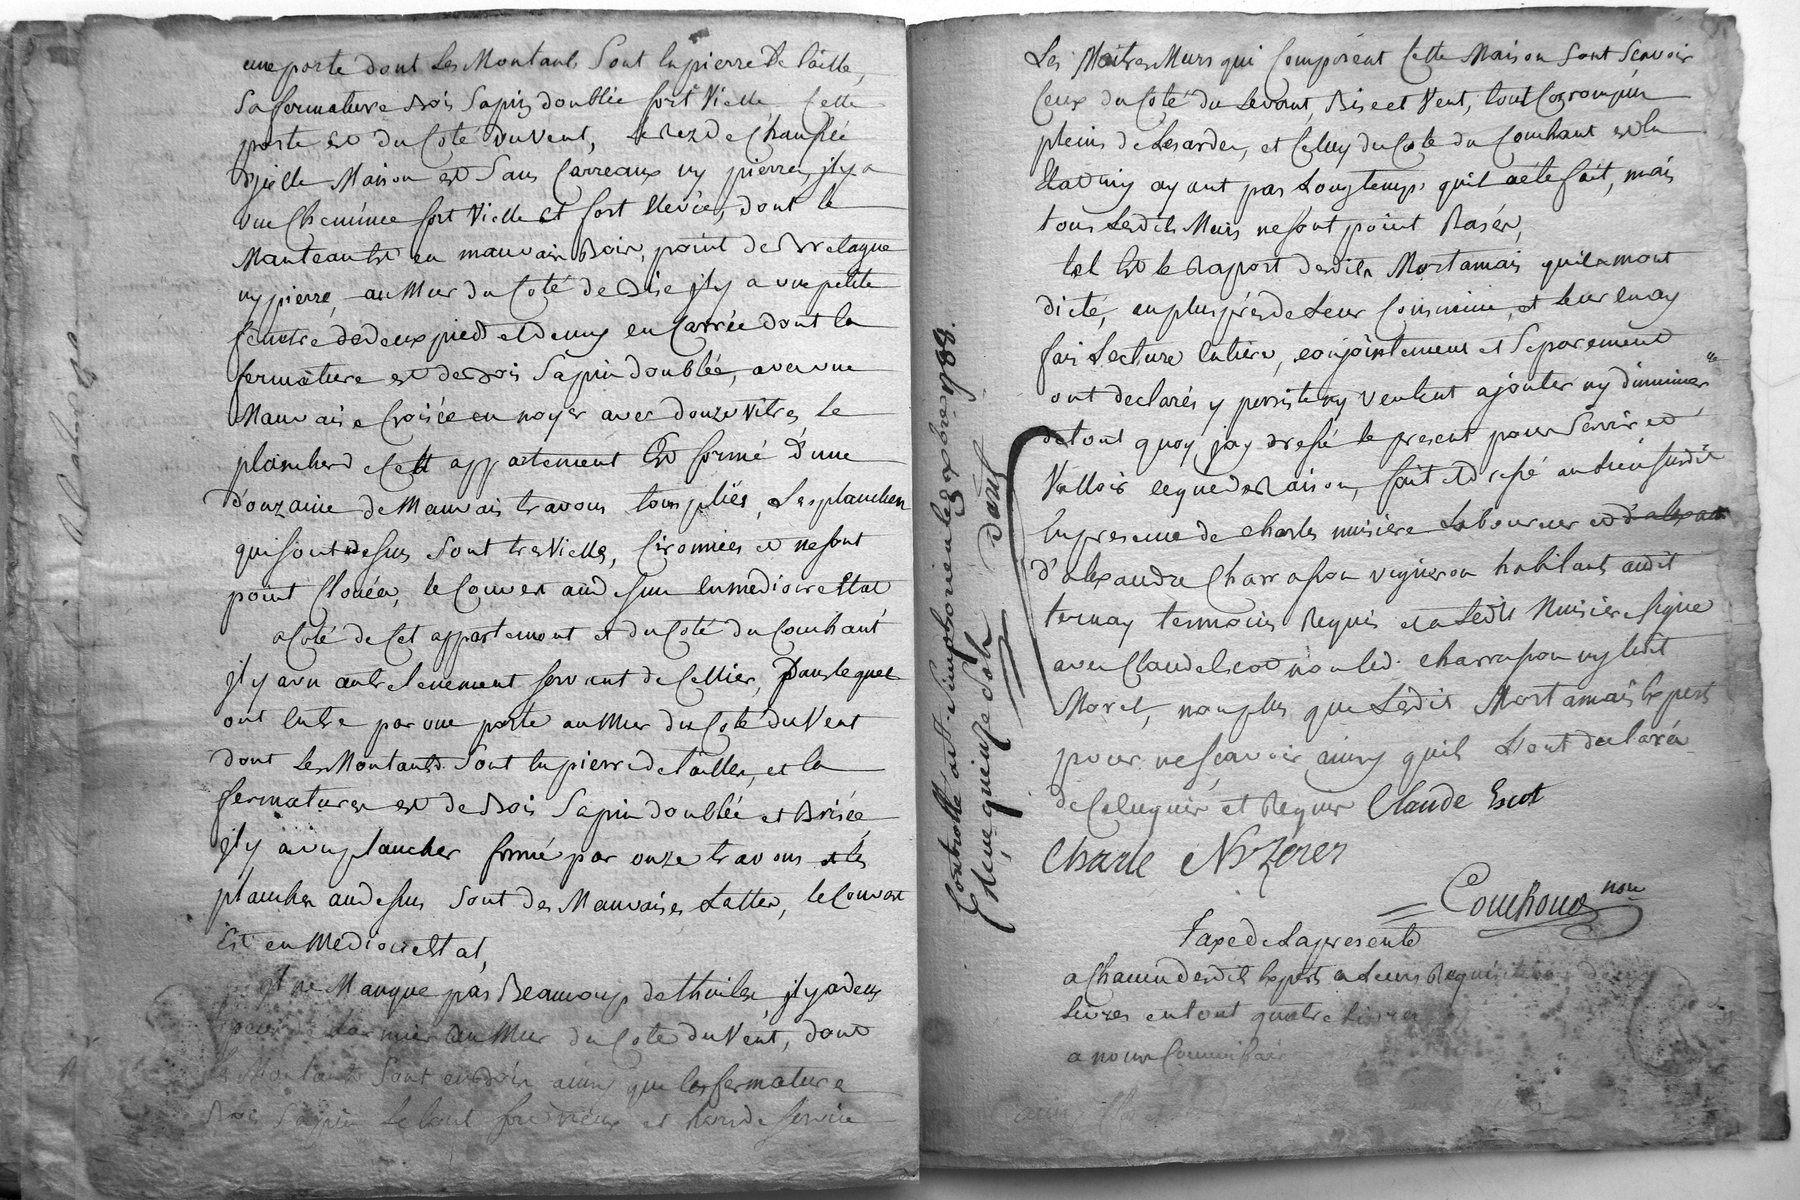 une porte dont Les Montants Sont En pierre De taille,
Sa fermature Bois Sapin doublée fort Vielle Cette
porte est du Coté du Vent, le Rez De Chaussée
Maison est Sans Carreaux ny pierre, jl y a
une Cheminée fort Vielle et fort Elevée, dont le
Manteau est en mauvais Bois, point de Bretagne
ny pierre, au Mur du Coté de Bise jl y a une petite
fenetre de deux pied et demy en Carrée dont la
fermature est de Bois Sapin doublée, avec une
Mauvaise Croisée en noyer avec douze Vitres, le
plancher de Cett appartement Est formé d'une
douzaine de Mauvais travons tous pliés, Les planches
qui sont dessus Sont tres Vielles, Cironnées et ne sont
point Clouées, le Couvert au dessus En mediocre Etat
a Coté de Cet appartement et du Coté du Couchant
jl y a un autre tenement servant de Cellier, Dans lequel
ont Entre par une porte au Mur du Coté du Vent
dont Les Montants Sont En pierre de tailles, et la
fermature est de Bois Sapin doublée et Brisée
jl y a un plancher formé par onze travons et les
planches au dessus Sont des Mauvaises Lattes, le Couvert
Est en Mediocre Etat,
jl ne Manque pas Beaucoup de thuiles, jl y a deux
au Mur du Coté du Vent, dont
les Montants Sont en Bois ainsy que les fermature
Bois Sapin Le tout fort Vieux et hors de Service
Les Maitres Murs qui Composent Cette Maison Sont Scavoir
Ceux du Coté du Levant, Bise et Vent, tout Corrompus
pleins de Lesardes, et Celuy du Coté du Couchant est En
Etat ny ayant pas Longtemps qu'il a été fait, mais
tous Lesdits Murs ne sont point Rasés,
tel Est le Raport desdits Mortamais quils mont
dicté, au plus près de Leur Consience, et leur En ay
fais Lecture Entiere, conjointement et Separement
ont declarés y persister ny veulent ajouter ny diminuer
de tout quoy, jay dressé le present pour Servir et
Valloir ce que de Raison, fait et dressé au Lieu susdit
En presence de Charles musiere Laboureur et
d'alexandre Charrasson vigneron habitants audit
ternay temoins Requis et a Ledit Musiere signé
avec Claude Escot non led. Charrasson ny ledit
Morel, non plus que Lesdits Mortamais Experts
pour ne sçavoir ainsy quils L'ont declarés
de Ce Enquis et Requis Claude Escot
Charle
Couchoud nore
Taxe de La presente
a Chacun desdits Experts a Leurs Requisition deux
Livres en tout quatre Livres
a nous Commissaire
Controllé à St Simphorien le 1788.
Reçu quinze sols